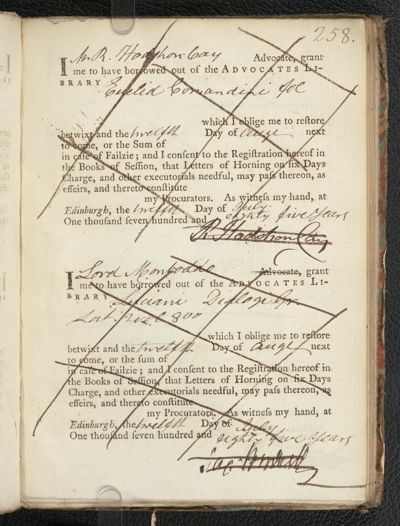 258.
I Mr. R. Hodshon Cay Advocate, grant
me to have borrowed out of the ADVOCATES LI-
BRARY Euclid Comandini fol
which I oblige me to restore
betwixt and the twelfth Day of Augt next
to come, or the Sum of
in case of Failzie; and I consent to the Registration hereof in
the Books of Session, that Letters of Horning on six Days
Charge, and other executorials needful, may pass thereon, as
effeirs, and thereto constitute
my Procurators. As witness my hand, at
Edinburgh, the twelfth Day of July
One thousand seven hundred and eighty five Years
R. Hodshon Cay
I Lord Monboddo Advocate, grant
me to have borrowed out of the ADVOCATES LI-
BRARY Luciani Dialogi Gr.
Lat.
which I oblige me to restore
betwixt and the twelfth Day of Augt next
to come, or the sum of
in case of Failzie; and I consent to the Registration hereof in
the Books of Session, that Letters of Horning on six Days
Charge, and other executorials needful, may pass thereon, as
effeirs, and thereto constitute
my Procurators. As witness my hand, at
Edinburgh, the twelfth Day of July
One thousand seven hundred and eighty five Years